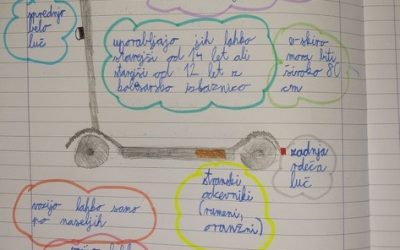 sprednjo
belo
luč
uporabljajo jih lahko
starejši od 14 let ali
starejši od 12 let z
kolesarsko izkaznico
e-skiro
mora biti
široko 80
cm
zadnja
rdeča
luč
stranski
odsevniki
(rumeni,
oranžni)
vozijo lahko samo
po naseljih